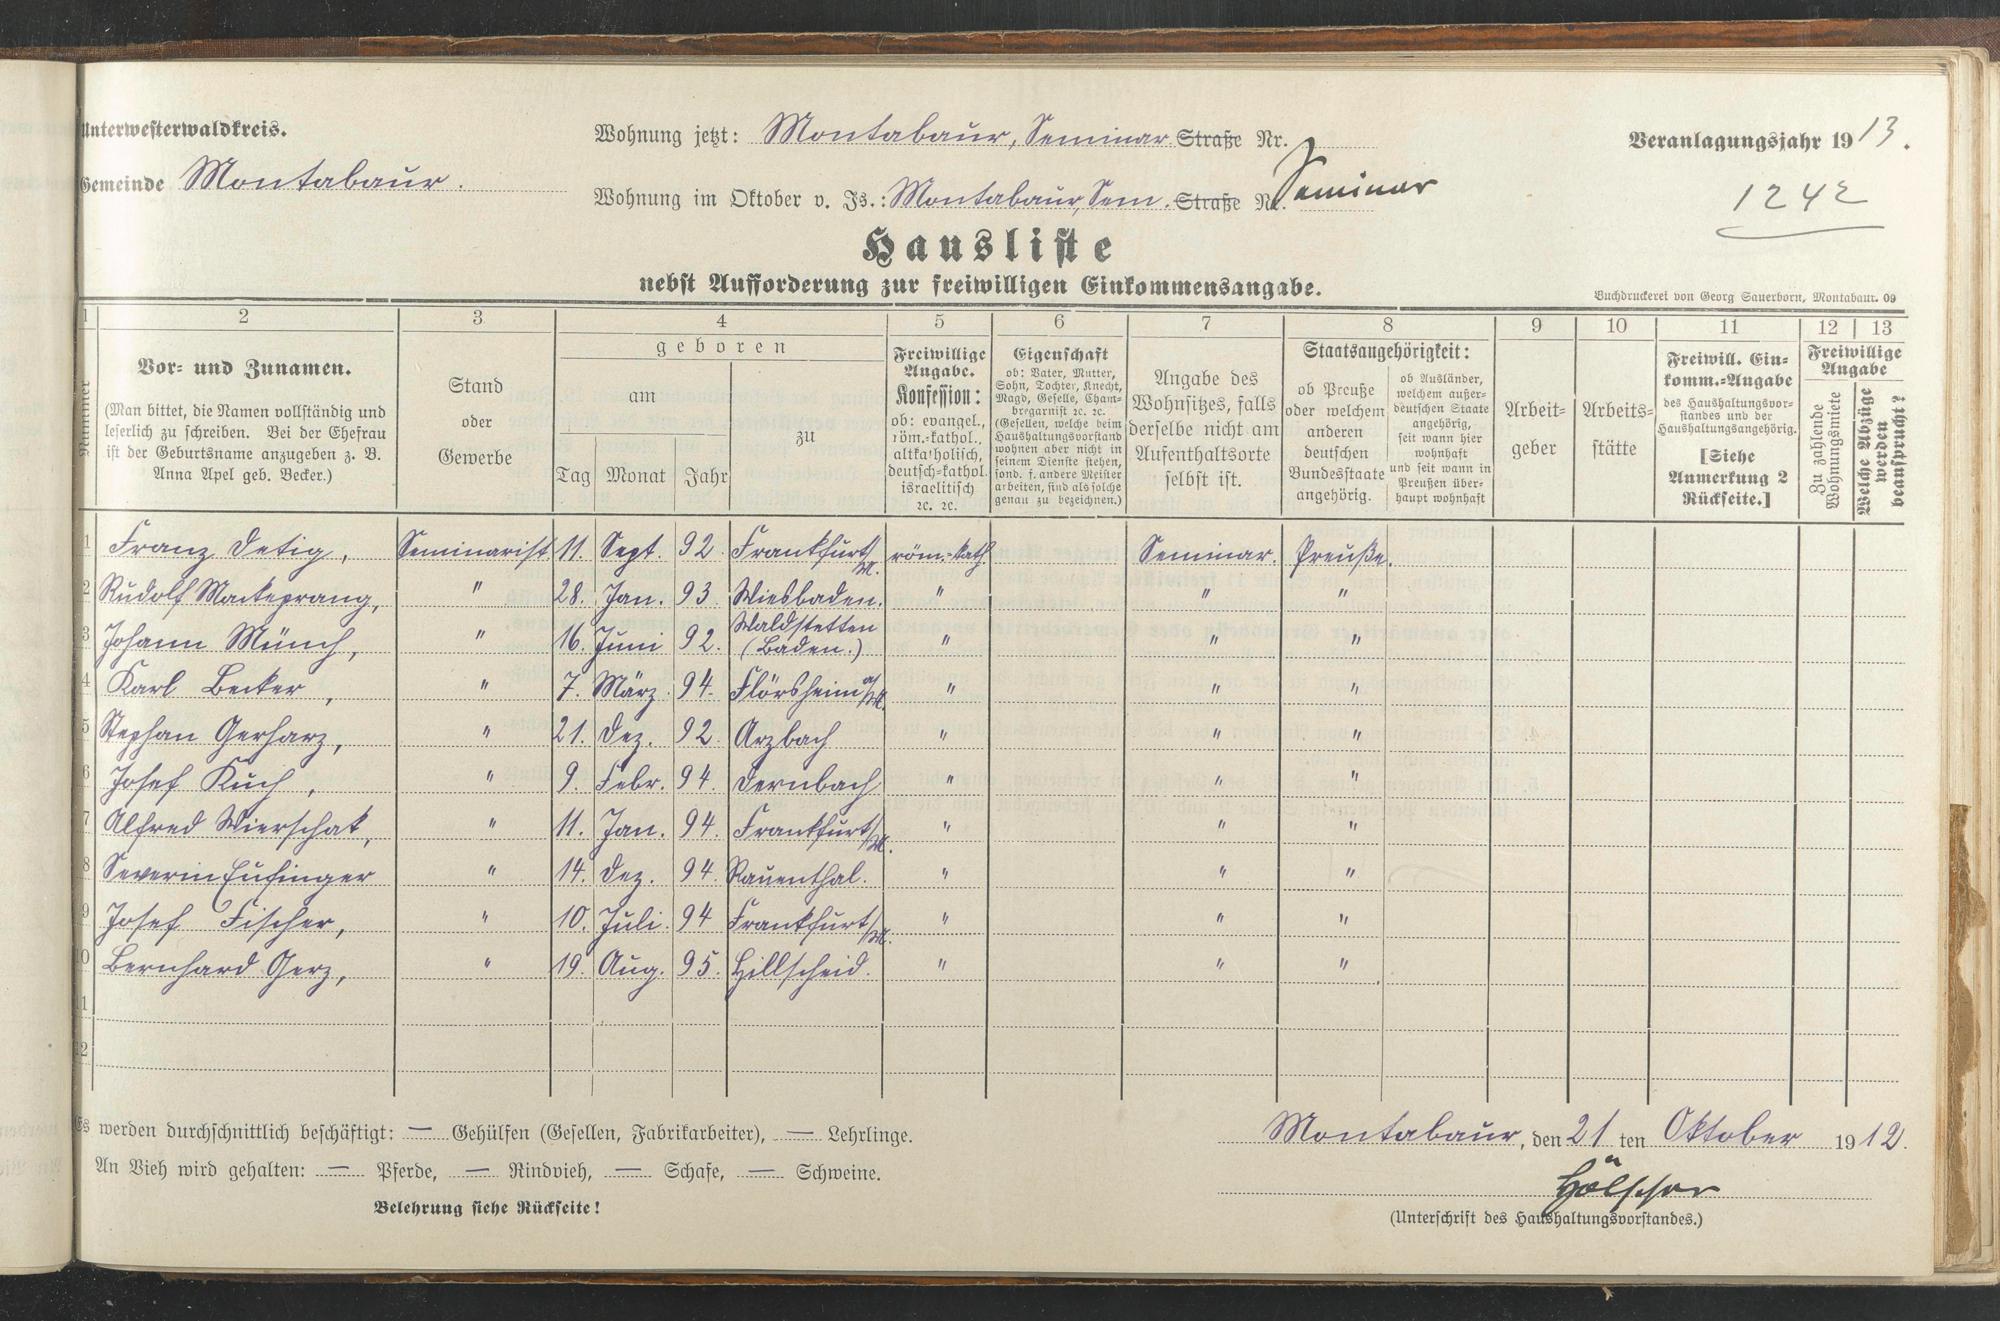 Unterwesterwaldkreis.
Wohnung jetzt: Montabaur, Seminar Straße Nr.
Veranlagungsjahr 1913.
Gemeinde Montabaur.
Wohnung im Oktober v. Js.: Montabaur, Sem. Straße Nr. Seminar
1242
Hausliste
nebst Aufforderung zur freiwilligen Einkommensangabe.
Buchdruckerei von Georg Sauerborn, Montabaur. 09
1 2 3 4 5 6 7 8 9 10 11 12 13
Nummer
Vor- und Zunamen.
(Man bittet, die Namen vollständig und
leserlich zu schreiben. Bei der Ehefrau
ist der Geburtsname anzugeben z. B.
Anna Apel geb. Becker.)
Stand
oder
Gewerbe
geboren
am
Tag Monat Jahr
zu
Freiwillige
Angabe.
Konfession:
ob: evangel.,
röm.-kathol.,
altkatholisch,
deutsch-kathol.
israelitisch
ꝛc. ꝛc.
Eigenschaft
ob: Vater, Mutter,
Sohn, Tochter, Knecht,
Magd, Geselle, Cham-
bregarnist ꝛc. ꝛc.
(Gesellen, welche beim
Haushaltungsvorstand
wohnen aber nicht in
seinem Dienste stehen,
sond. f. andere Meister
arbeiten, sind als solche
genau zu bezeichnen.)
Angabe des
Wohnsitzes, falls
derselbe nicht am
Aufenthaltsorte
selbst ist.
Staatsangehörigkeit:
ob Preuße
oder welchem
anderen
deutschen
Bundesstaate
angehörig.
ob Ausländer,
welchem außer-
deutschen Staate
angehörig,
seit wann hier
wohnhaft
und seit wann in
Preußen über-
haupt wohnhaft
Arbeit-
geber
Arbeits-
stätte
Freiwill. Ein-
komm.-Angabe
des Haushaltungsvor-
standes und der
Haushaltungsangehörig.
[Siehe
Anmerkung 2
Rückseite.]
Freiwillige
Angabe
Zu zahlende
Wohnungsmiete
Welche Abzüge
werden
beansprucht?
1 Franz Detig, Seminarist 11. Sept. 92. Frankfurt/M. röm.-kath. Seminar. Preuße.
2 Rudolf Mackeprang, " 28. Jan. 93 Wiesbaden. " " "
3 Johann Münch, " 16. Juni 92. Waldstetten (Baden.) " " "
4 Karl Becker, " 7. März 94. Flörsheim a/M. " " "
5 Stephan Gerharz, " 21. Dez. 92. Arzbach " " "
6 Josef Kuch, " 9. Febr. 94. Dernbach " " "
7 Alfred Wierschak, " 11. Jan. 94. Frankfurt/M. " " "
8 Severin Eufinger " 14. Dez. 94. Rauenthal. " " "
9 Josef Fischer, " 10. Juli 94 Frankfurt/M. " " "
10 Bernhard Gerz, " 19. Aug. 95. Hillscheid. " " "
11
12
Es werden durchschnittlich beschäftigt: — Gehülfen (Gesellen, Fabrikarbeiter), — Lehrlinge.
Montabaur, den 21 ten Oktober 1912.
An Vieh wird gehalten: — Pferde, — Rindvieh, — Schafe, — Schweine.
Hölscher
Belehrung siehe Rückseite!
(Unterschrift des Haushaltungsvorstandes.)